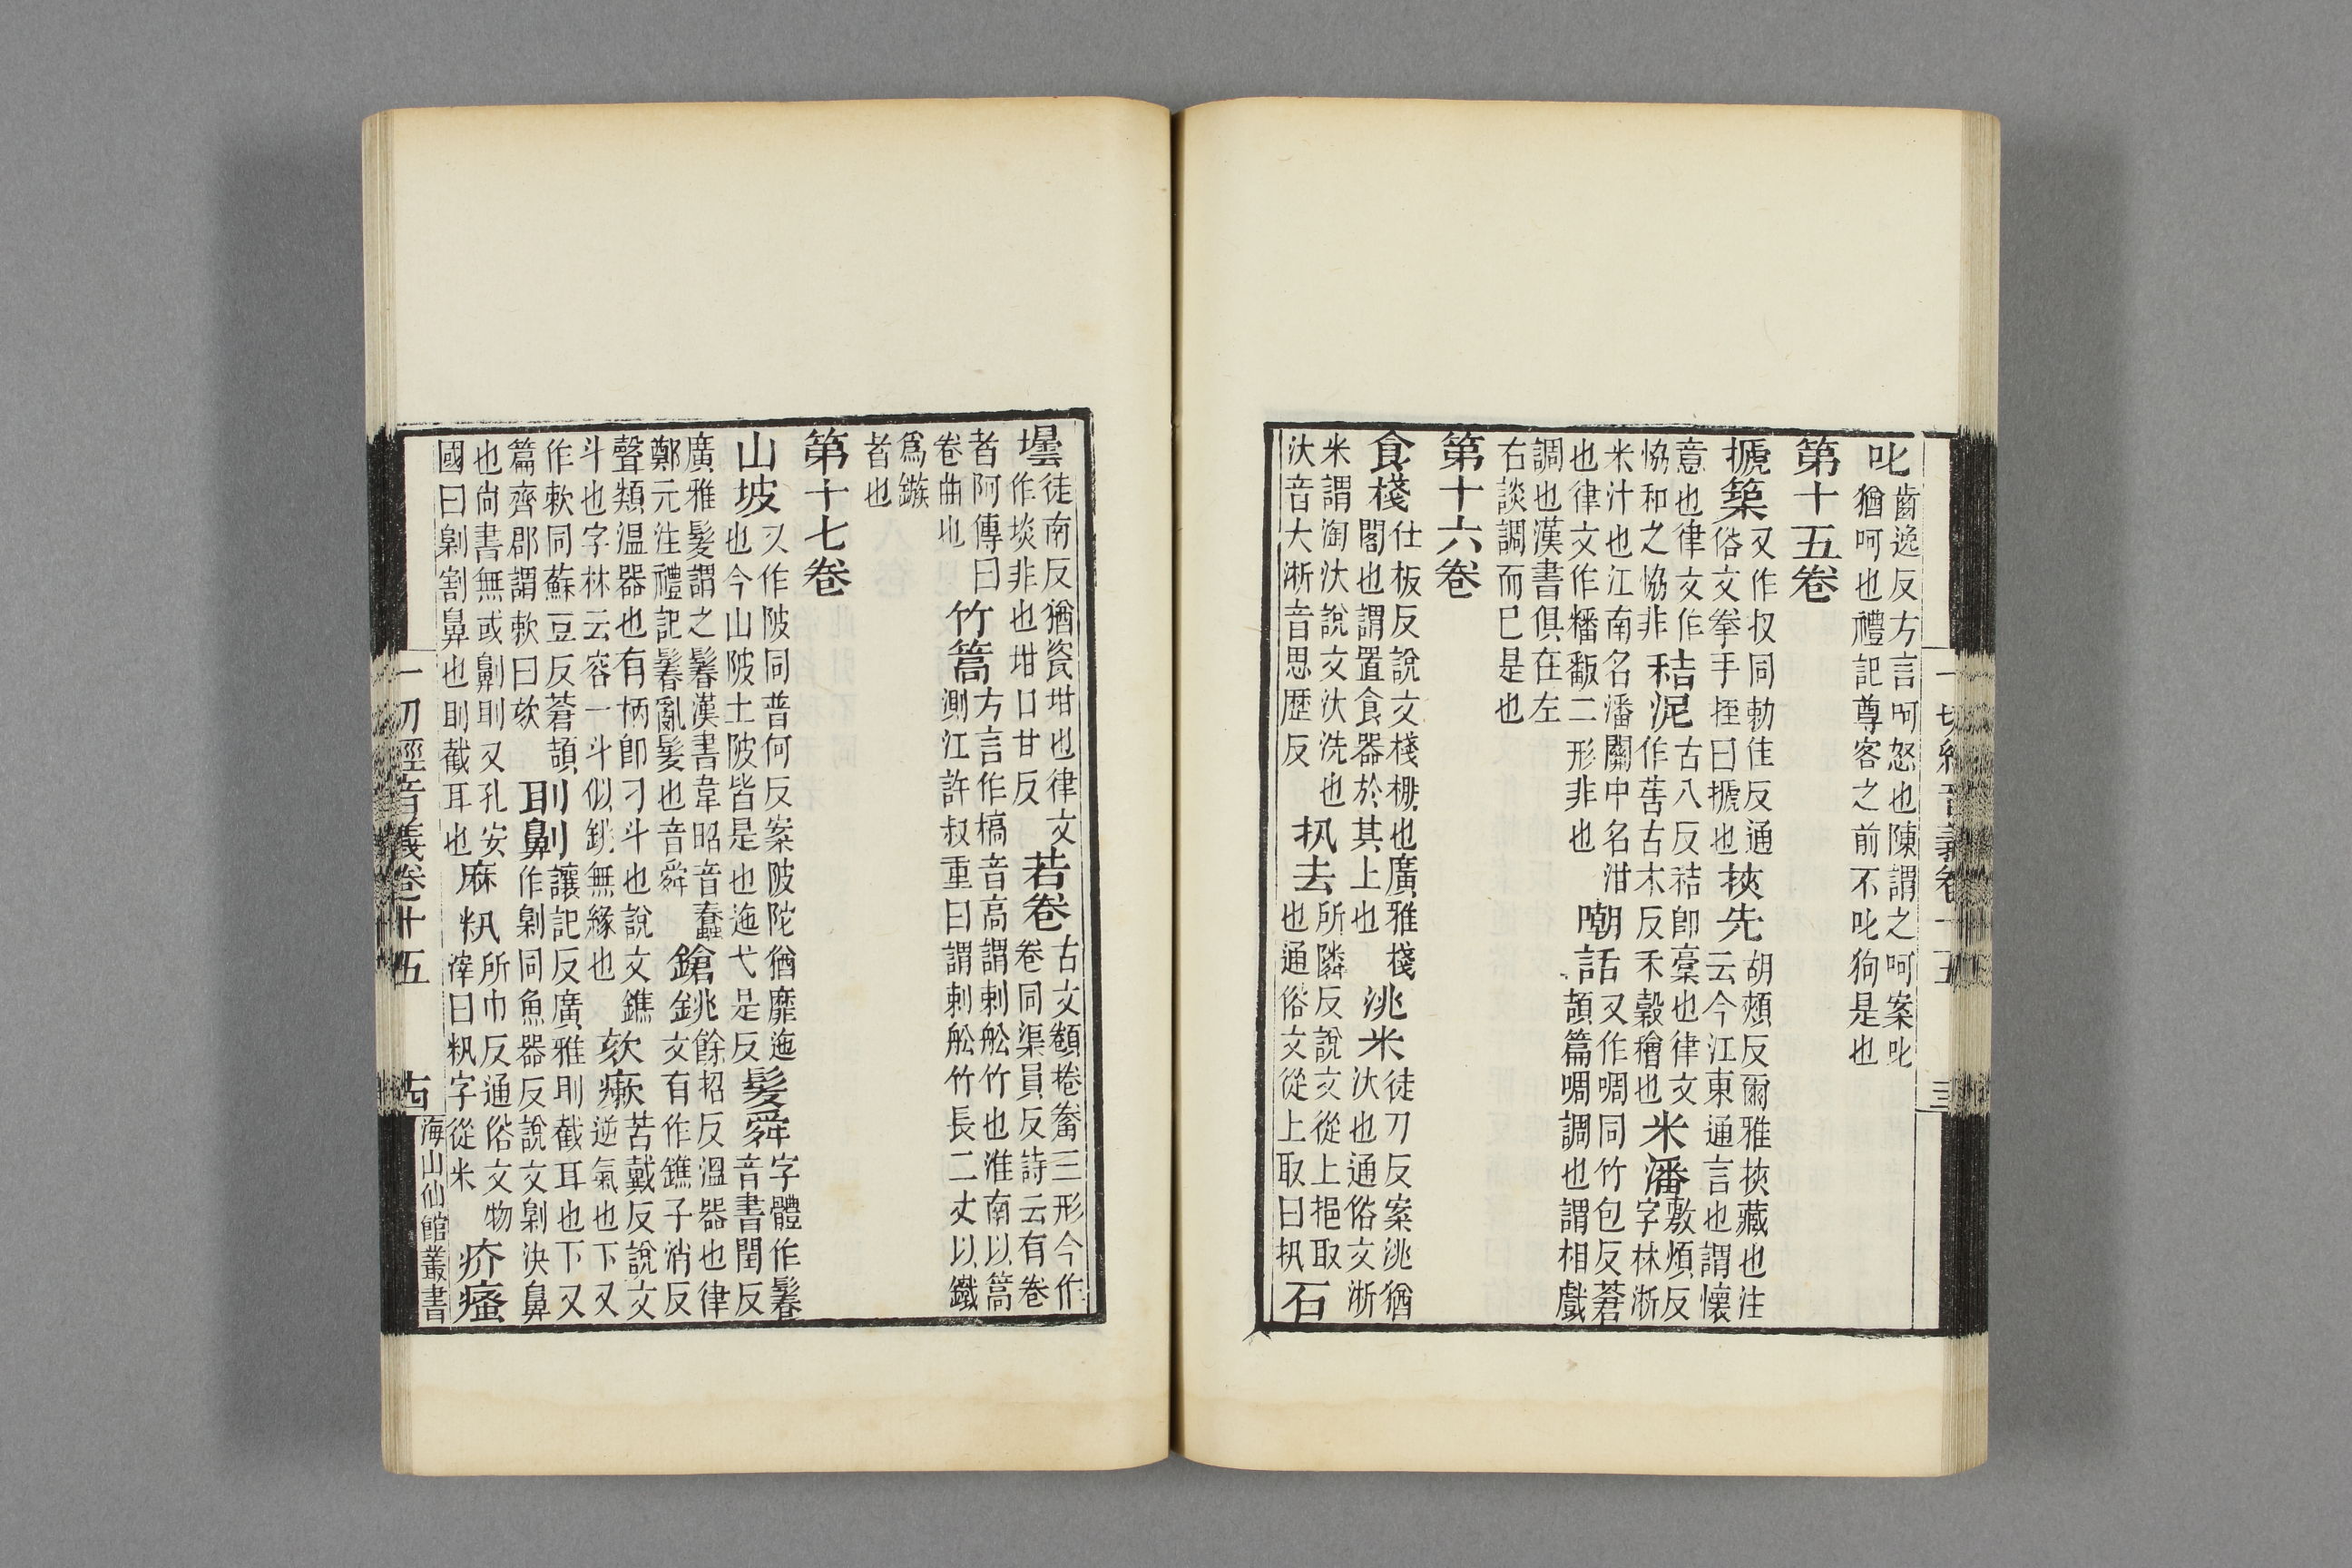 一切經音義卷十五
叱齒逸反方言呵怒也陳謂之呵案叱
猶呵也禮記尊客之前不叱狗是也
第十五卷
搋築又作扠同勅佳反通
俗文拳手挃曰搋也
挾先胡頰反爾雅挾藏也注
云今江東通言也謂懷
意也律文作
協和之協非
秸泥古八反秸即稾也律文
作古木反禾穀也
米潘敷煩反
字林淅
米汁也江南名潘關中名泔
也律文作二形非也
嘲話又作啁同竹包反蒼
頡篇啁調也謂相戲
調也漢書俱在左
右談調而已是也
第十六卷
食棧仕板反說文棧棚也廣雅棧
閣也謂置食器於其上也
洮米徒刀反案洮猶
汰也通俗文淅
米謂淘汰說文汰洗也
汰音大淅音思歷反
扟去所隣反說文從上挹取
也通俗文從上取曰扟
石
壜徒南反猶瓷坩也律文
作埮非也坩口甘反
若卷古文棬三形今作
卷同渠員反詩云有卷
者阿傳曰
卷曲也
竹篙方言作槁音高謂刺舩竹也淮南以篙
測江許叔重曰謂刺舩竹長二丈以鐵
爲鏃
者也
第十七卷
山坡又作陂同普何反案陂陀猶靡迤
也今山陂土陂皆是也迤弋是反
髮舜字體作鬊
音書閏反
廣雅髮謂之鬊漢書韋昭音蠢
鄭元注禮記鬊亂髮也音舜
鎗銚餘招反溫器也律
文有作鐎子消反
聲類温器也有柄即刁斗也說文鐎
斗也字林云容一斗似銚無緣也
欬瘷苦戴反說文
逆氣也下又
作欶同蘇豆反蒼頡
篇齊郡謂欶曰欬
刵劓讓記反廣雅刵截耳也下又
作劓同魚器反說文劓決鼻
也尚書無或劓刵又孔安
國曰劓割鼻也刵截耳也
麻籸所巾反通俗文物
滓曰籸字從米
疥瘙
一切經音義卷十五
海山仙館叢書